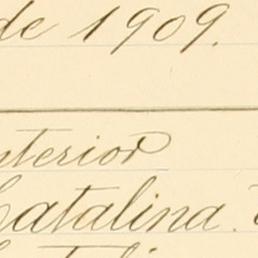 de 1909.
nterior
Catalina.